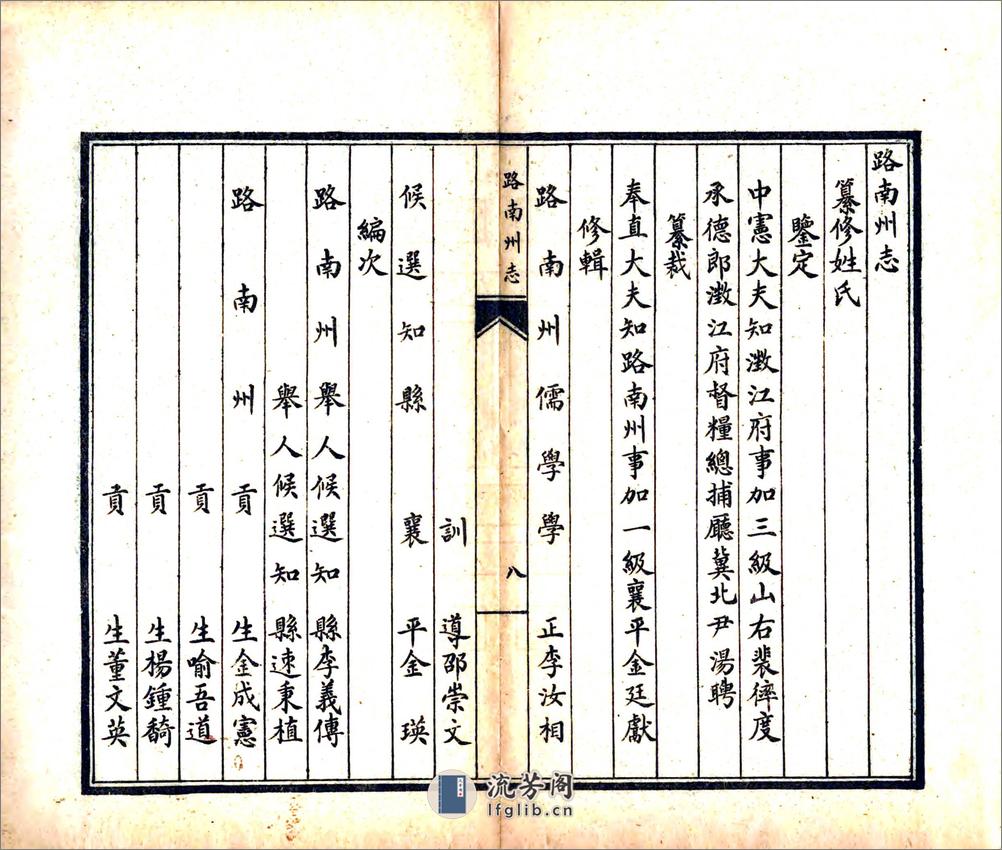 路南州志
纂修姓氏
鑒定
中憲大夫知澂江府事加三級山右裴𢕋度
承德郎澂江府督糧總捕廳冀北尹湯聘
纂裁
奉直大夫知路南州事加一級襄平金廷獻
修輯
路南州儒學學正李汝相
路南州志
八
訓導邵崇文
候選知縣襄平金瑛
編次
路南州舉人候選知縣李義傳
舉人候選知縣速秉植
路南州貢生金成憲
貢生喻吾道
貢生楊鍾𬴊
貢生董文英
流芳阁
lfglib.cn